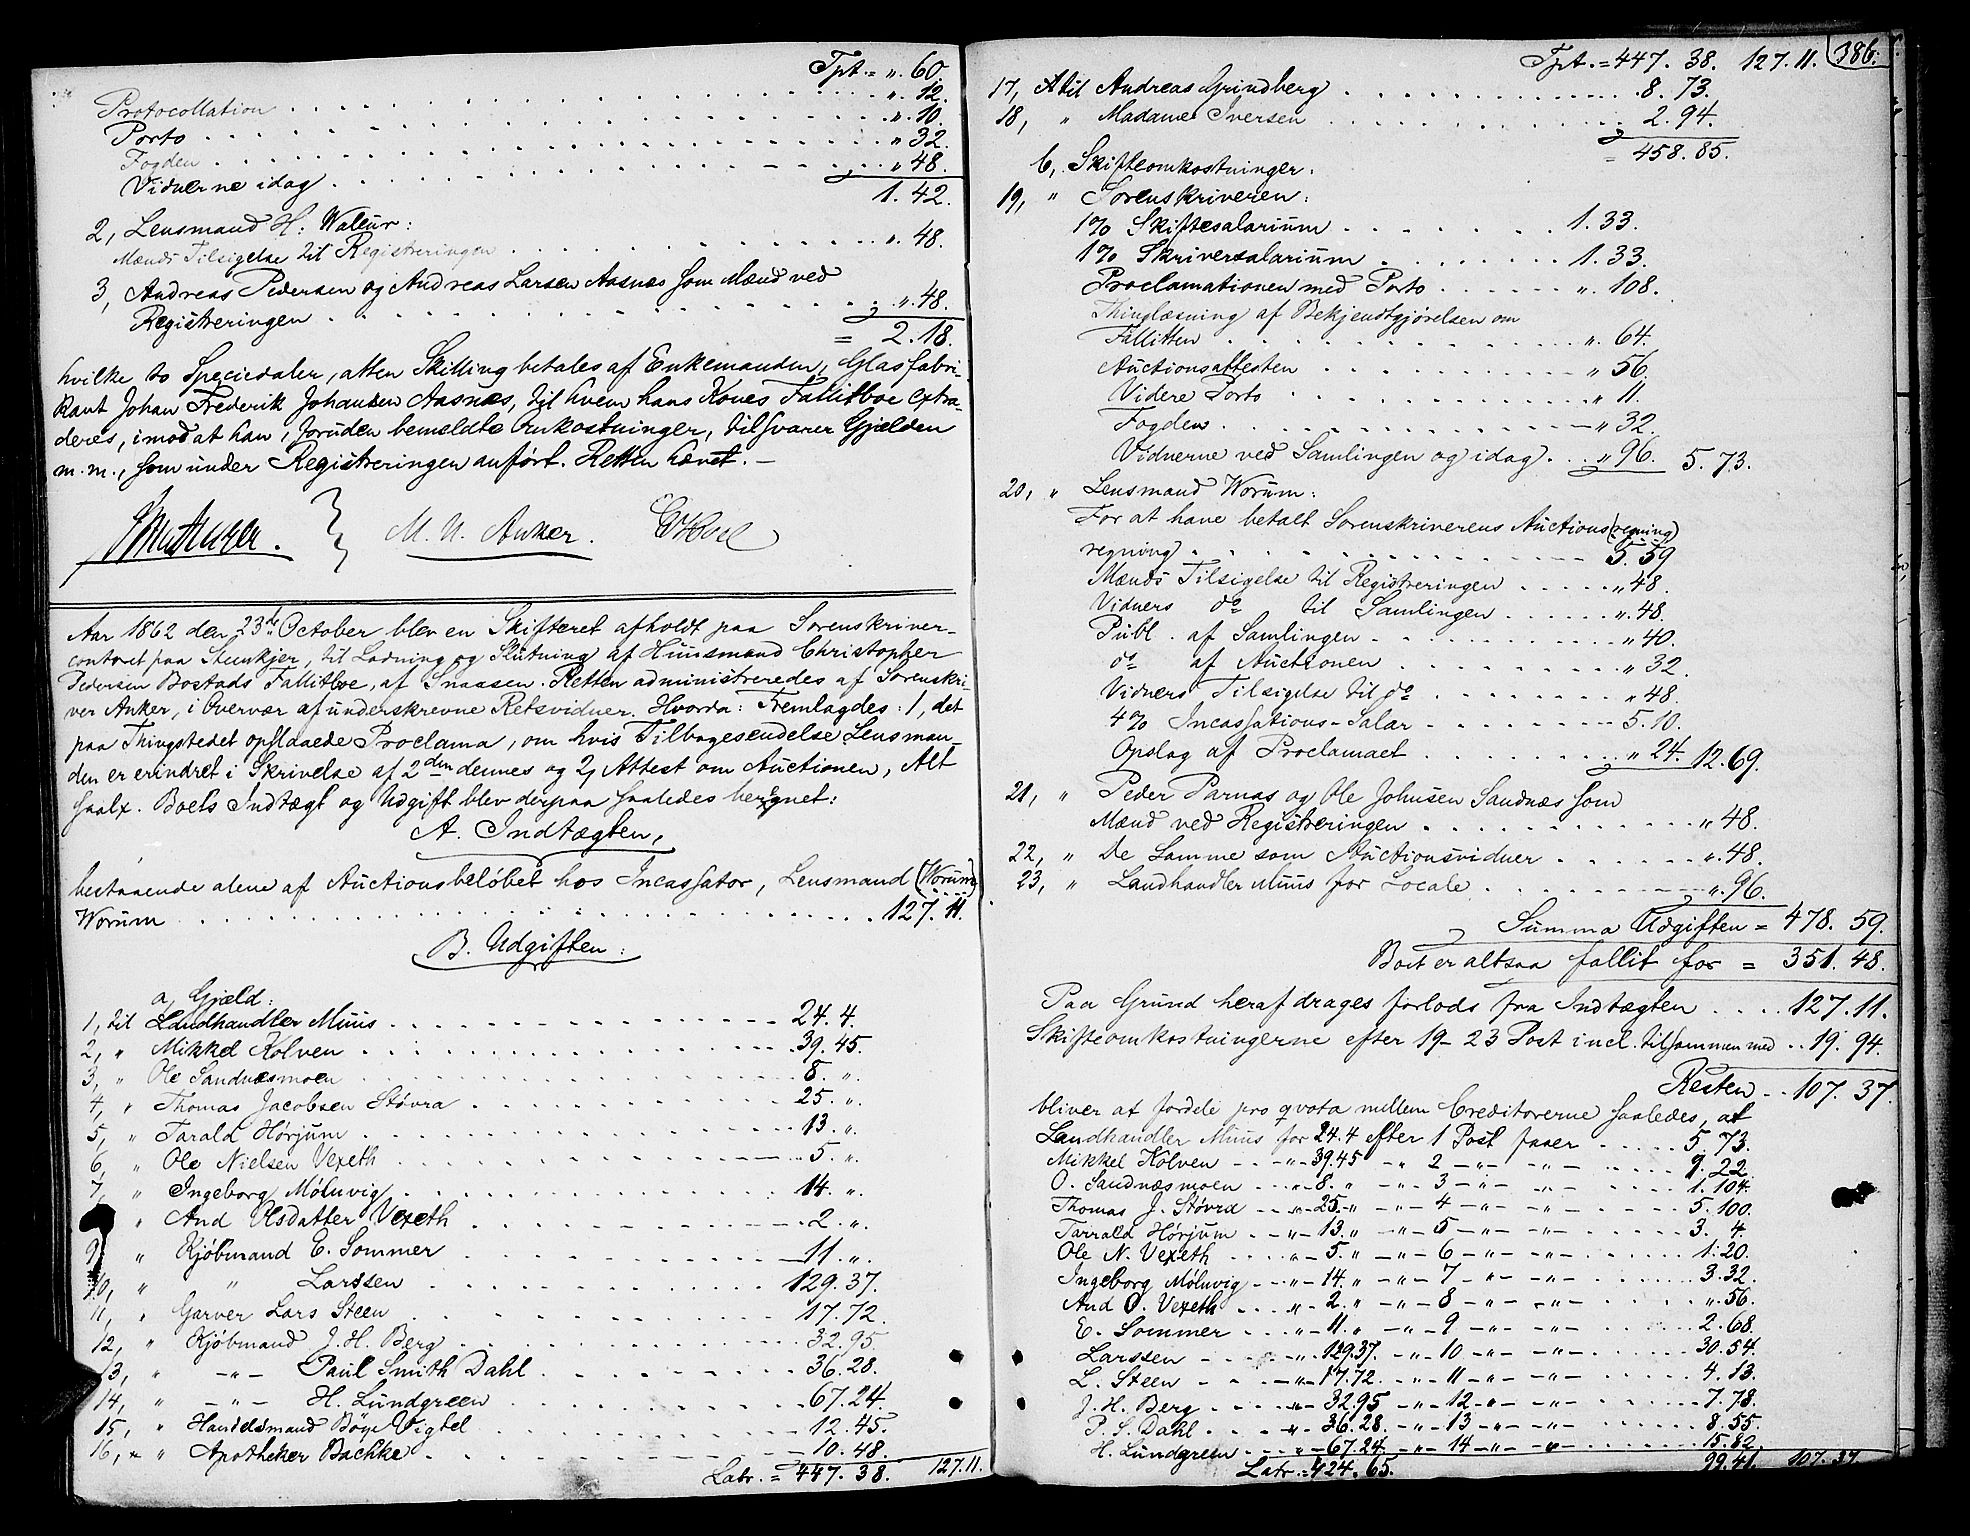 Tpt. = „. 60.
Protocollation . . . „. 12.
Porto . . . „. 10.
Fogden . . . „ 32.
Vidnerne idag . . . „ 48.
1. 42.
2, Lensmand H: Waleur:
Mænds Tilsigelse til Registreringen . . . „. 48.
3, Andreas Pedersen og Andreas Larsen Aasnæs som Mænd ved
Registreringen . . . „. 48.
= 2. 18.
hvilke to Speciedaler, atten Skilling betales af Enkemanden, Glasfabri-
kant Johan Frederik Johansen Aasnæs, til hvem hans Kones Fallitboe extra-
deres, imod at han, foruden bemeldte Omkostninger, tilsvarer Gjælden
m. m., som under Registreringen anført. Retten hævet. —
M. U. Anker.
Aar 1862 den 23de October blev en Skifteret afholdt paa Sorenskriver-
contoret paa Steenkjer, til Ladning og Slutning af Huusmand Christopher
Pedersen Bostads Fallitboe, af Snaasen. Retten administreredes af Sorenskri-
ver Anker, i Overvær af underskrevne Retsvidner. Hvorda: Fremlagdes: 1, det
paa Thingstedet opslaaede Proclama, om hvis Tilbagesendelse Lensman-
den er erindret i Skrivelse af 2den dennes og 2, Attest om Auctionen, Alt
saalx. Boets Indtægt og Udgift blev derpaa saaledes beregnet:
A. Indtægten,
bestaaende alene af Auctionsbeløbet hos Incassator, Lensmand (Worum)
Worum . . . 127. 11.
B. Udgiften:
a, Gjæld:
1, til Landhandler Muus . . . 24. 4.
2, „ Mikkel Kolven . . . 39. 45.
3, „ Ole Sandnæsmoen . . . 8. „.
4, „ Thomas Jacobsen Støvra . . . 25. „.
5, „ Tarald Hørjum . . . 13. „.
6, „ Ole Nielsen Vexeth . . . 5. „.
7, „ Ingeborg Møluvig . . . 14. „.
„ And Olsdatter Vexeth . . . 2. „.
9, „ Kjøbmand E. Sommer . . . 11. „.
10, „ „ Larssen . . . 129. 37.
11, „ Garver Lars Steen . . . 17. 72.
12, „ Kjøbmand J. H. Berg . . . 32. 95.
13, „ -„- Paul Smith Dahl . . . 36. 28.
14, „ -„- H. Lundgreen . . . 67. 24.
15, „ Handelsmand Bøye Vigtel . . . 12. 45.
16, „ Apotheker Bachke . . . 10. 48.
Latr. = 447. 38. 127. 11.
Tpt. = 447. 38. 127. 11. 386.
17, A til Andreas Grindberg . . . 8. 73.
18, „ Madame Iversen . . . 2. 94.
= 458. 85.
b, Skifteomkostninger:
19, „ Sorenskriveren:
1% Skiftesalarium . . . 1. 33.
1% Skriversalarium . . . 1. 33.
Proclamationen med Porto . . . „. 108.
Thinglæsning af Bekjendtgjørelsen om
Fallitten . . . „. 64.
Auctionsattesten . . . „ 56.
Videre Porto . . . „ 11.
Fogden . . . „ 32.
Vidnerne ved Samlingen og idag . . . „ 96. 5. 73.
20, „ Lensmand Worum:
For at have betalt Sorenskriverens Auctions(regning)
regning . . . 5. 59
Mænds Tilsigelse til Registreringen . . . „ 48.
Vidners do til Samlingen . . . „. 48.
Publ. af Samlingen . . . „ 40.
do af Auctionen . . . „ 32.
Vidners Tilsigelse til do . . . „ 48.
4% Incassations-Salær . . . 5. 10.
Opslag af Proclamaet . . . „ 24. 12. 69.
21, „ Peder Parnas og Ole Johnsen Sandnæs som
Mænd ved Registreringen . . . „ 48.
22, „ De Samme som Auctionsvidner . . . „. 48.
23, „ Landhandler Muus for Locale . . . „. 96.
Summa Udgiften = 478. 59.
Boet er altsaa fallit for = 351. 48.
Paa Grund heraf drages forlods fra Indtægten . . . 127. 11.
Skifteomkostningerne efter 19 - 23 Post incl. tilsammen med . . 19. 94.
Resten . . 107. 37.
bliver at fordele pro qvota mellem Creditorerne saaledes, at
Landhandler Muus for 24. 4 efter 1 Post faaer . . . 5. 73.
Mikkel Kolven - - „ - 39. 45 - „ 2 - „ - - „ - . . . 9. 22.
O. Sandnæsmoen - „ - 8. „ - „ - 3 - „ - - „ - . . . 1. 104.
Thomas J. Støvra - „ - 25. „ - „ - 4 - „ - - „ - . . . 5. 100.
Tarrald Hørjum - „ - 13. „ - „ - 5 - „ - - „ - . . . 3. 4.
Ole N. Vexeth - „ - 5. „ - „ - 6 - „ - - „ - . . . 1. 20.
Ingeborg Møluvig - „ - 14. „ - „ - 7 - „ - - „ - . . . 3. 32.
And O. Vexeth - „ - 2. „ - „ - 8 - „ - - „ - . . . „. 56.
E. Sommer - „ - 11. „ - „ - 9 - „ - - „ - . . . 2. 68.
Larssen - „ - 129. 37. - „ - 10 - „ - - „ - . . . 30. 54.
L. Steen - „ - 17. 72. - „ - 11 - „ - - „ - . . . 4. 13.
J. H. Berg - „ - 32. 95 - „ - 12 - „ - - „ - . . . 7. 78.
P. S. Dahl - „ - 36. 28. - „ - 13 - „ - - „ - . . . 8. 55
H. Lundgreen - „ - 67. 24. - „ - 14 - „ - - „ - . . . 15. 82.
Latr. = 424. 65. 99. 41. 107. 37.